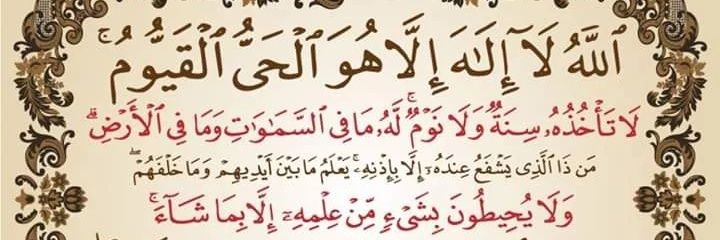 ٱللَّهُ لَآ إِلَٰهَ إِلَّا هُوَ ٱلْحَىُّ ٱلْقَيُّومُ ۚ
لَا تَأْخُذُهُۥ سِنَةٌ وَلَا نَوْمٌ ۚ لَّهُۥ مَا فِى ٱلسَّمَٰوَٰتِ وَمَا فِى ٱلْأَرْضِ ۗ
مَن ذَا ٱلَّذِى يَشْفَعُ عِندَهُۥٓ إِلَّا بِإِذْنِهِۦ ۚ يَعْلَمُ مَا بَيْنَ أَيْدِيهِمْ وَمَا خَلْفَهُمْ ۖ
وَلَا يُحِيطُونَ بِشَىْءٍ مِّنْ عِلْمِهِۦٓ إِلَّا بِمَا شَآءَ ۚ